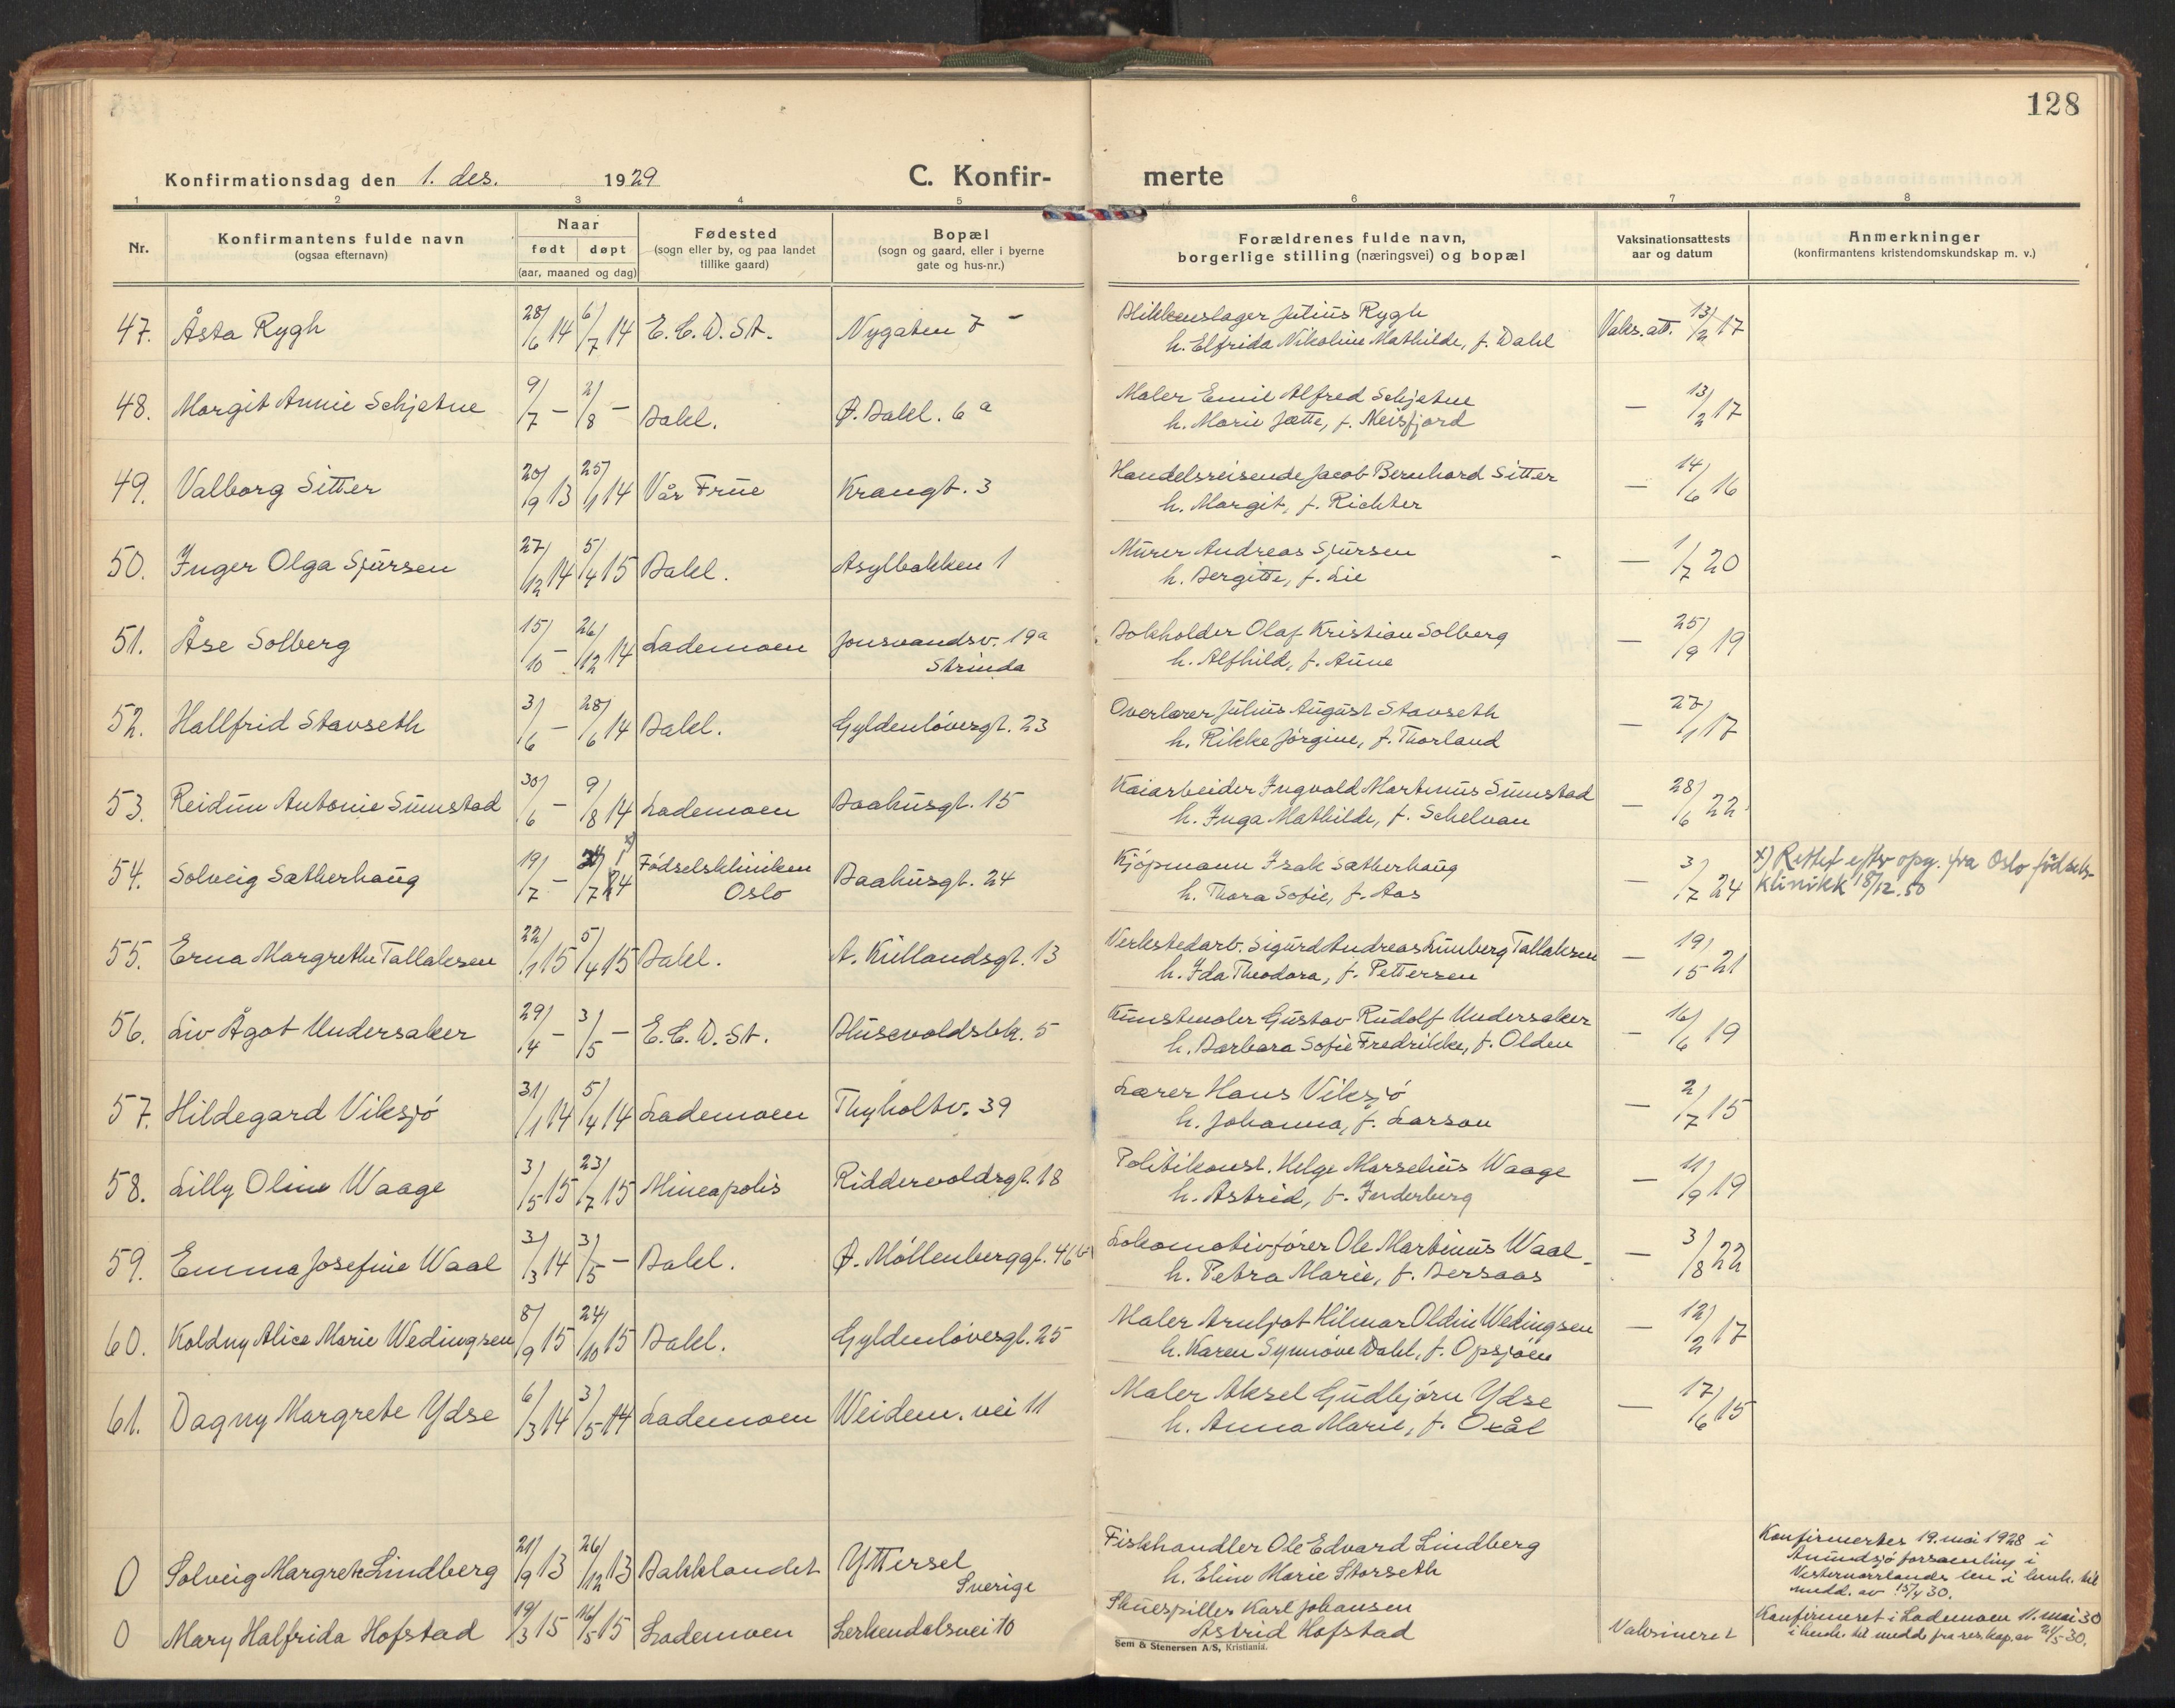 128
Konfirmationsdag den 1. des. 1929 C. Konfir- merte
1 2 3 4 5 6 7 8
Nr.
Konfirmantens fulde navn
(ogsaa efternavn)
Naar
født døpt
(aar, maaned og dag)
Fødested
(sogn eller by, og paa landet
tillike gaard)
Bopæl
(sogn og gaard, eller i byerne
gate og hus-nr.)
Forældrenes fulde navn,
borgerlige stilling (næringsvei) og bopæl
Vaksinationsattests
aar og datum
Anmerkninger
(konfirmantens kristendomskundskap m. v.)
47. Åsta Rygh 28/6 14 6/7 14 E. C. D. St. Nygaten 7 - Blikkenslager Julius Rygh Vaks. att. 13/2 17
h. Elfrida Nikoline Mathilde, f. Dahl
48. Margit Annie Schjetne 9/7 — 2/8 — Bakl. Ø. Bakl. 6a Maler Emil Alfred Schjetne — 13/2 17
h. Marie Jætte, f. Meisfjord
49. Valborg Sitter 20/9 13 25/1 14 Vår Frue Krangt. 3 Handelsreisende Jacob Bernhard Sitter — 14/6 16
h. Margit, f. Richter
50. Inger Olga Sjursen 27/12 14 5/4 15 Bakl. Asylbakken 1 Murer Andreas Sjursen — 1/7 20
h. Bergitte, f. Lie
51. Åse Solberg 15/10 — 26/12 14 Lademoen Jonsvandsv. 19a Bokholder Olaf Kristian Solberg — 25/9 19
Strinda h. Alfhild, f. Aune
52. Hallfrid Stavseth 3/6 — 28/6 14 Bakl. Gyldenløvesgt. 23 Overlærer Julius August Stavseth — 27/1 17
h. Rikke Jørgine, f. Thorland
53. Reidun Antonie Sumstad 30/6 — 9/8 14 Lademoen Baahusgt. 15 Kaiarbeider Ingvald Martinus Sumstad — 28/6 22
h. Inga Mathilde, f. Schelvan
54. Solveig Sætherhaug 19/7 — /7 24 x) Fødselsklinikken Baahusgt. 24 Kjøpmann Isak Sætherhaug — 3/7 24 x) Rettet efter opg. fra Oslo fødsels-
Oslo h. Thora Sofie, f. Aas klinikk 18/12.50
55. Erna Margrethe Tallaksen 22/1 15 5/4 15 Bakl. A. Kiellandsgt. 13 Verkstedarb. Sigurd Andreas Lunberg Tallaksen — 19/5 21
h. Ida Theodora, f. Pettersen
56. Liv Ågot Undersaker 29/4 — 3/5 — E. C. D. St. Blusevoldsbk. 5 Kunstmaler Gustav Rudolf Undersaker — 16/6 19
h. Barbara Sofie Fredrikke, f. Olden
57. Hildegard Viksjø 31/1 14 5/4 14 Lademoen Thyholtv. 39 Lærer Hans Viksjø — 2/7 15
h. Johanna, f. Larson
58. Lilly Oline Waage 3/5 15 23/7 15 Mineapolis Riddervoldsgt. 18 Politikonst. Helge Marselius Waage — 11/9 19
h. Astrid, f. Inderberg
59. Emma Josefine Waal 3/3 14 3/5 — Bakl. Ø. Møllenberggt. 46b Lokomotivfører Ole Martinus Waal — 3/8 22
h. Petra Marie, f. Bersaas
60. Koldny Alice Marie Wedingsen 8/9 15 24/10 15 Bakl. Gyldenløvesgt. 25 Maler Arnljot Hilmar Oldin Wedingsen — 12/2 17
h. Karen Synnøve Dahl, f. Opsjøen
61. Dagny Margrete Ydse 6/3 14 3/5 14 Lademoen Weidem. vei 11 Maler Aksel Gudbjørn Ydse — 17/6 15
h. Anna Marie, f. Oxål
0 Solveig Margrete Lindberg 21/9 13 26/12 13 Bakklandet Yttersel Fiskhandler Ole Edvard Lindberg Konfirmertes 19. mai 1928 i
Sverige h. Eline Marie Storseth Anundsjø forsamling i
Vesternorrlands len i henh. til
medd. av 15/4 30.
0 Mary Halfrida Hofstad 19/3 15 16/5 15 Lademoen Lerkendalsvei 10 Skuespiller Karl Johansen Vaksineret Konfirmeret i Lademoen 11. mai 30
Astrid Hofstad i henh. til medd. fra res. kap. av 21/5 30.
Sem & Stenersen A/S, Kristiania.